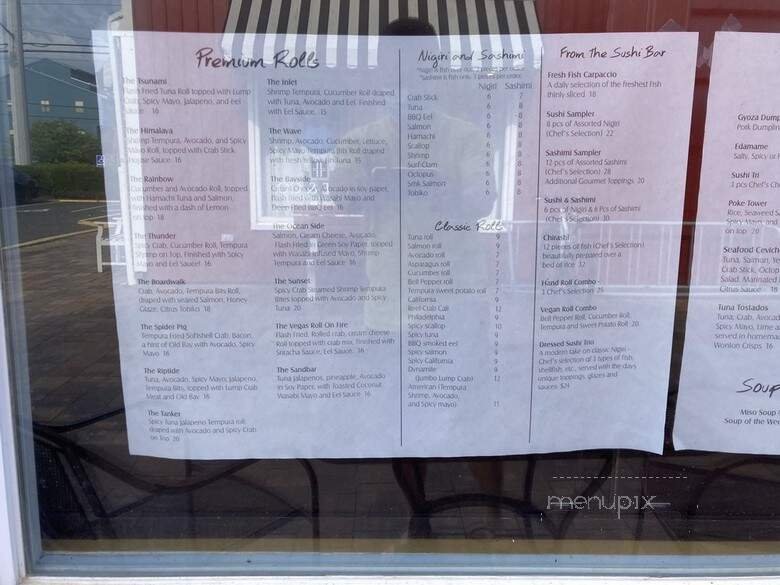 Premium Rolls
The Tsunami
Flash Fried Tuna Roll topped with Lump
Crab, Spicy Mayo, Jalapeno, and Eel
Sauce 16
The Himalaya
Shrimp Tempura, Avocado, and Spicy
Mayo Roll, topped with Crab Stick,
House Sauce 16
The Rainbow
Cucumber and Avocado Roll, topped
with Hamachi Tuna and Salmon,
finished with a dash of Lemon
on top 18
The Thunder
Spicy Crab, Cucumber Roll, Tempura
Shrimp on Top, Finished with Spicy
Mayo and Eel Sauce! 16
The Boardwalk
Crab, Avocado, Tempura Bits Roll,
draped with seared Salmon, Honey
Glaze, Citrus Tobiko 18
The Spider Pig
Tempura Fried Softshell Crab, Bacon,
a hint of Old Bay with Avocado, Spicy
Mayo 16
The Riptide
Tuna, Avocado, Spicy Mayo, Jalapeno,
Tempura Bits, topped with Lump Crab
Meat and Old Bay 18
The Tanker
Spicy Tuna Jalapeno Tempura roll,
draped with Avocado and Spicy Crab
on Top 20
The Inlet
Shrimp Tempura, Cucumber Roll draped
with Tuna, Avocado and Eel. Finished
with Eel Sauce. 15
The Wave
Shrimp, Avocado, Cucumber, Lettuce,
Spicy Mayo Tempura Bits Roll draped
with fresh Yellowfin Tuna 15
The Bayside
Avocado in soy paper,
flash fried with Wasabi Mayo and
Deep Fried BBQ Eel 16
The Ocean Side
Salmon, Cream Cheese, Avocado,
Flash Fried in Green Soy Paper, topped
with Wasabi Infused Mayo, Shrimp
Tempura and Eel Sauce 16
The Sunset
Spicy Crab Steamed Shrimp Tempura
Bites topped with Avocado and Spicy
Tuna 20
The Vegas Roll On Fire
Flash Fried, Rolled crab, cream cheese
Roll topped with crab mix, finished with
Sriracha Sauce, Eel Sauce. 16
The Sandbar
Tuna Jalapenos, pineapple, Avocado
in Soy Paper, with Toasted Coconut
Wasabi Mayo and Eel Sauce 16
Nigiri and Sashimi
*Nigiri is fish over rice 2 pieces per order
*Sashimi is fish only 3 pieces per order
Nigiri Sashimi
Crab Stick 6 7
Tuna 6 8
BBQ Eel 6 8
Salmon 6 8
Hamachi 6 8
Scallop 6 8
Shrimp 6 8
Surf Clam 6 8
Octopus 6 8
Smk Salmon 6 8
Tobiko 6 8
Classic Rolls
Tuna roll 9
Salmon roll 9
Avocado roll 7
Asparagus roll 7
Cucumber roll 7
Bell Pepper roll 7
Tempura sweet potato roll 7
California 9
Reel Crab Cali 12
Philadelphia 9
Spicy scallop 10
Spicy tuna 9
BBQ smoked eel 9
Spicy salmon 9
Spicy California 9
Dynamite 9
(Jumbo Lump Crab) 12
American (Tempura
Shrimp, Avocado,
and Spicy mayo) 11
From The Sushi Bar
Fresh Fish Carpaccio
A daily selection of the freshest Fish
thinly sliced 18
Sushi Sampler
8 pcs of Assorted Nigiri
(Chef's Selection) 22
Sashimi Sampler
12 pcs of Assorted Sashimi
(Chef's Selection) 28
Additional Gourmet Toppings 20
Sushi & Sashimi
6 pcs of Nigiri & 6 Pcs of Sashimi
(Chef's Selection) 30
Chirashi
12 pieces of fish (Chef's Selections)
beautifully prepared over a
bed of rice 32
Hand Roll Combo -
3 Chef's Selection 25
Vegan Roll Combo
Bell Pepper Roll, Cucumber Roll,
Tempura and Sweet Potato Roll 20
Dressed Sushi Trio
A modern take on classic Nigiri -
Chef's selection of 3 types of fish,
shellfish, etc., served with the days
unique toppings, glazes and
sauces $24
Gyoza Dump
Pork Dumpli
Edamame
Salty, Spicy or
Sushi Tri
3 pcs Chef's
Poke Tower
Rice, Seaweed
Spicy Mayo, and
on top 20
Seafood Cevich
Tuna, Salmon, Ye
Crab Stick, Octop
Salad, Marinated
Citrus Sauce
Tuna Tostados
Tuna, Crab, Avoca
Spicy Mayo, Lime
served in homema
Wonton Crisps 16
Soup
Miso Soup
Soup of the We
menupix